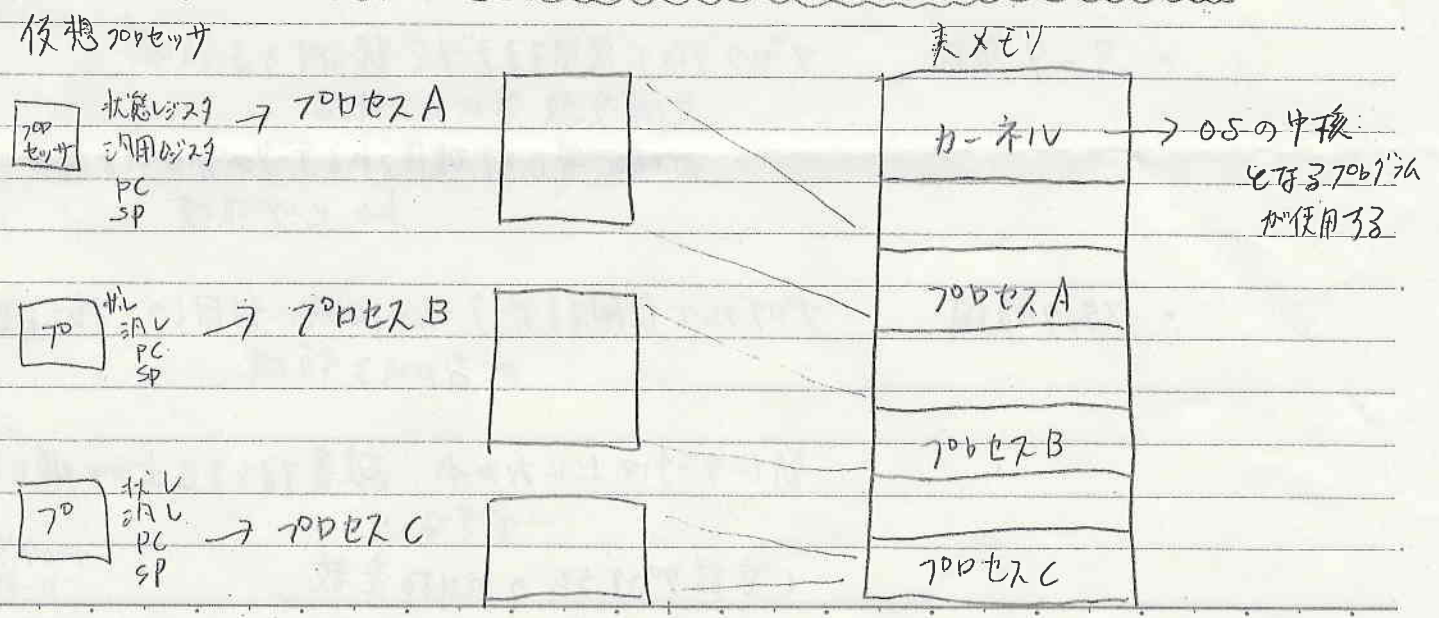 仮想プロセッサ
プロ
セッサ
状態レジスタ
汎用レジスタ
PC
SP
→ プロセスA
プ
状レ
汎レ
PC
SP
→ プロセスB
プ
状レ
汎レ
PC
SP
→ プロセスC
実メモリ
カーネル
→ OSの中核
となるプログラム
が使用する
プロセスA
プロセスB
プロセスC